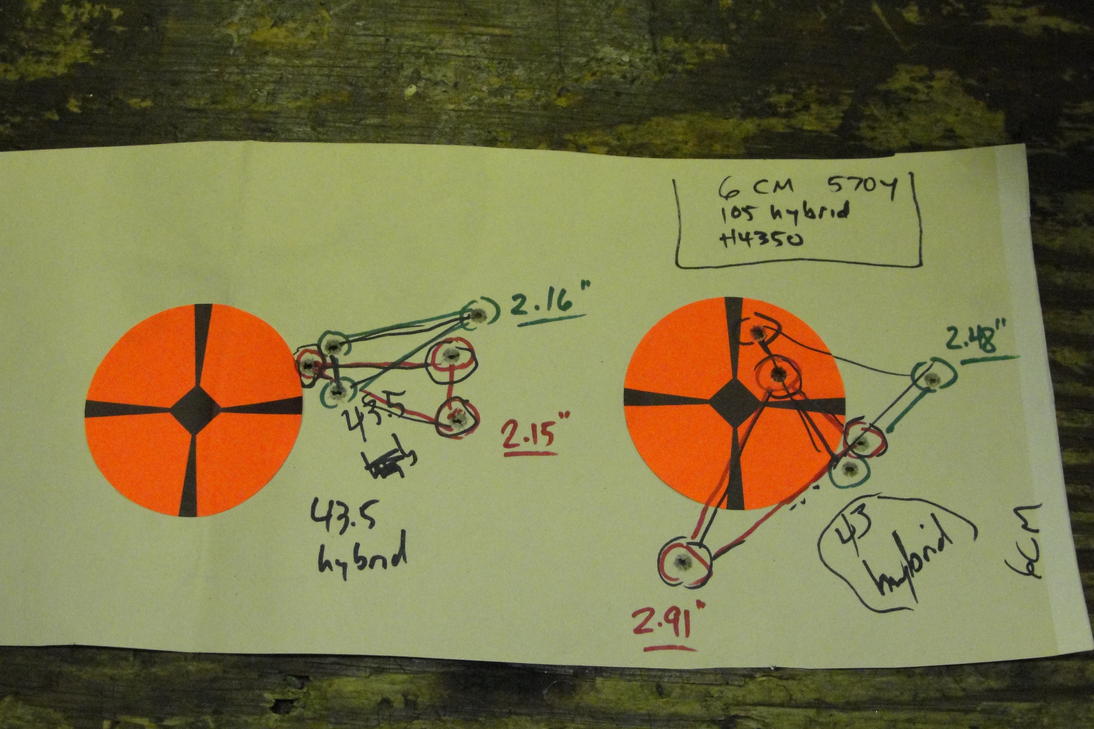 6 CM 570y
105 hybrid
H4350
2.16"
2.48"
43.5
2.15"
43.5
hybrid
43
hybrid
6CM
2.91"